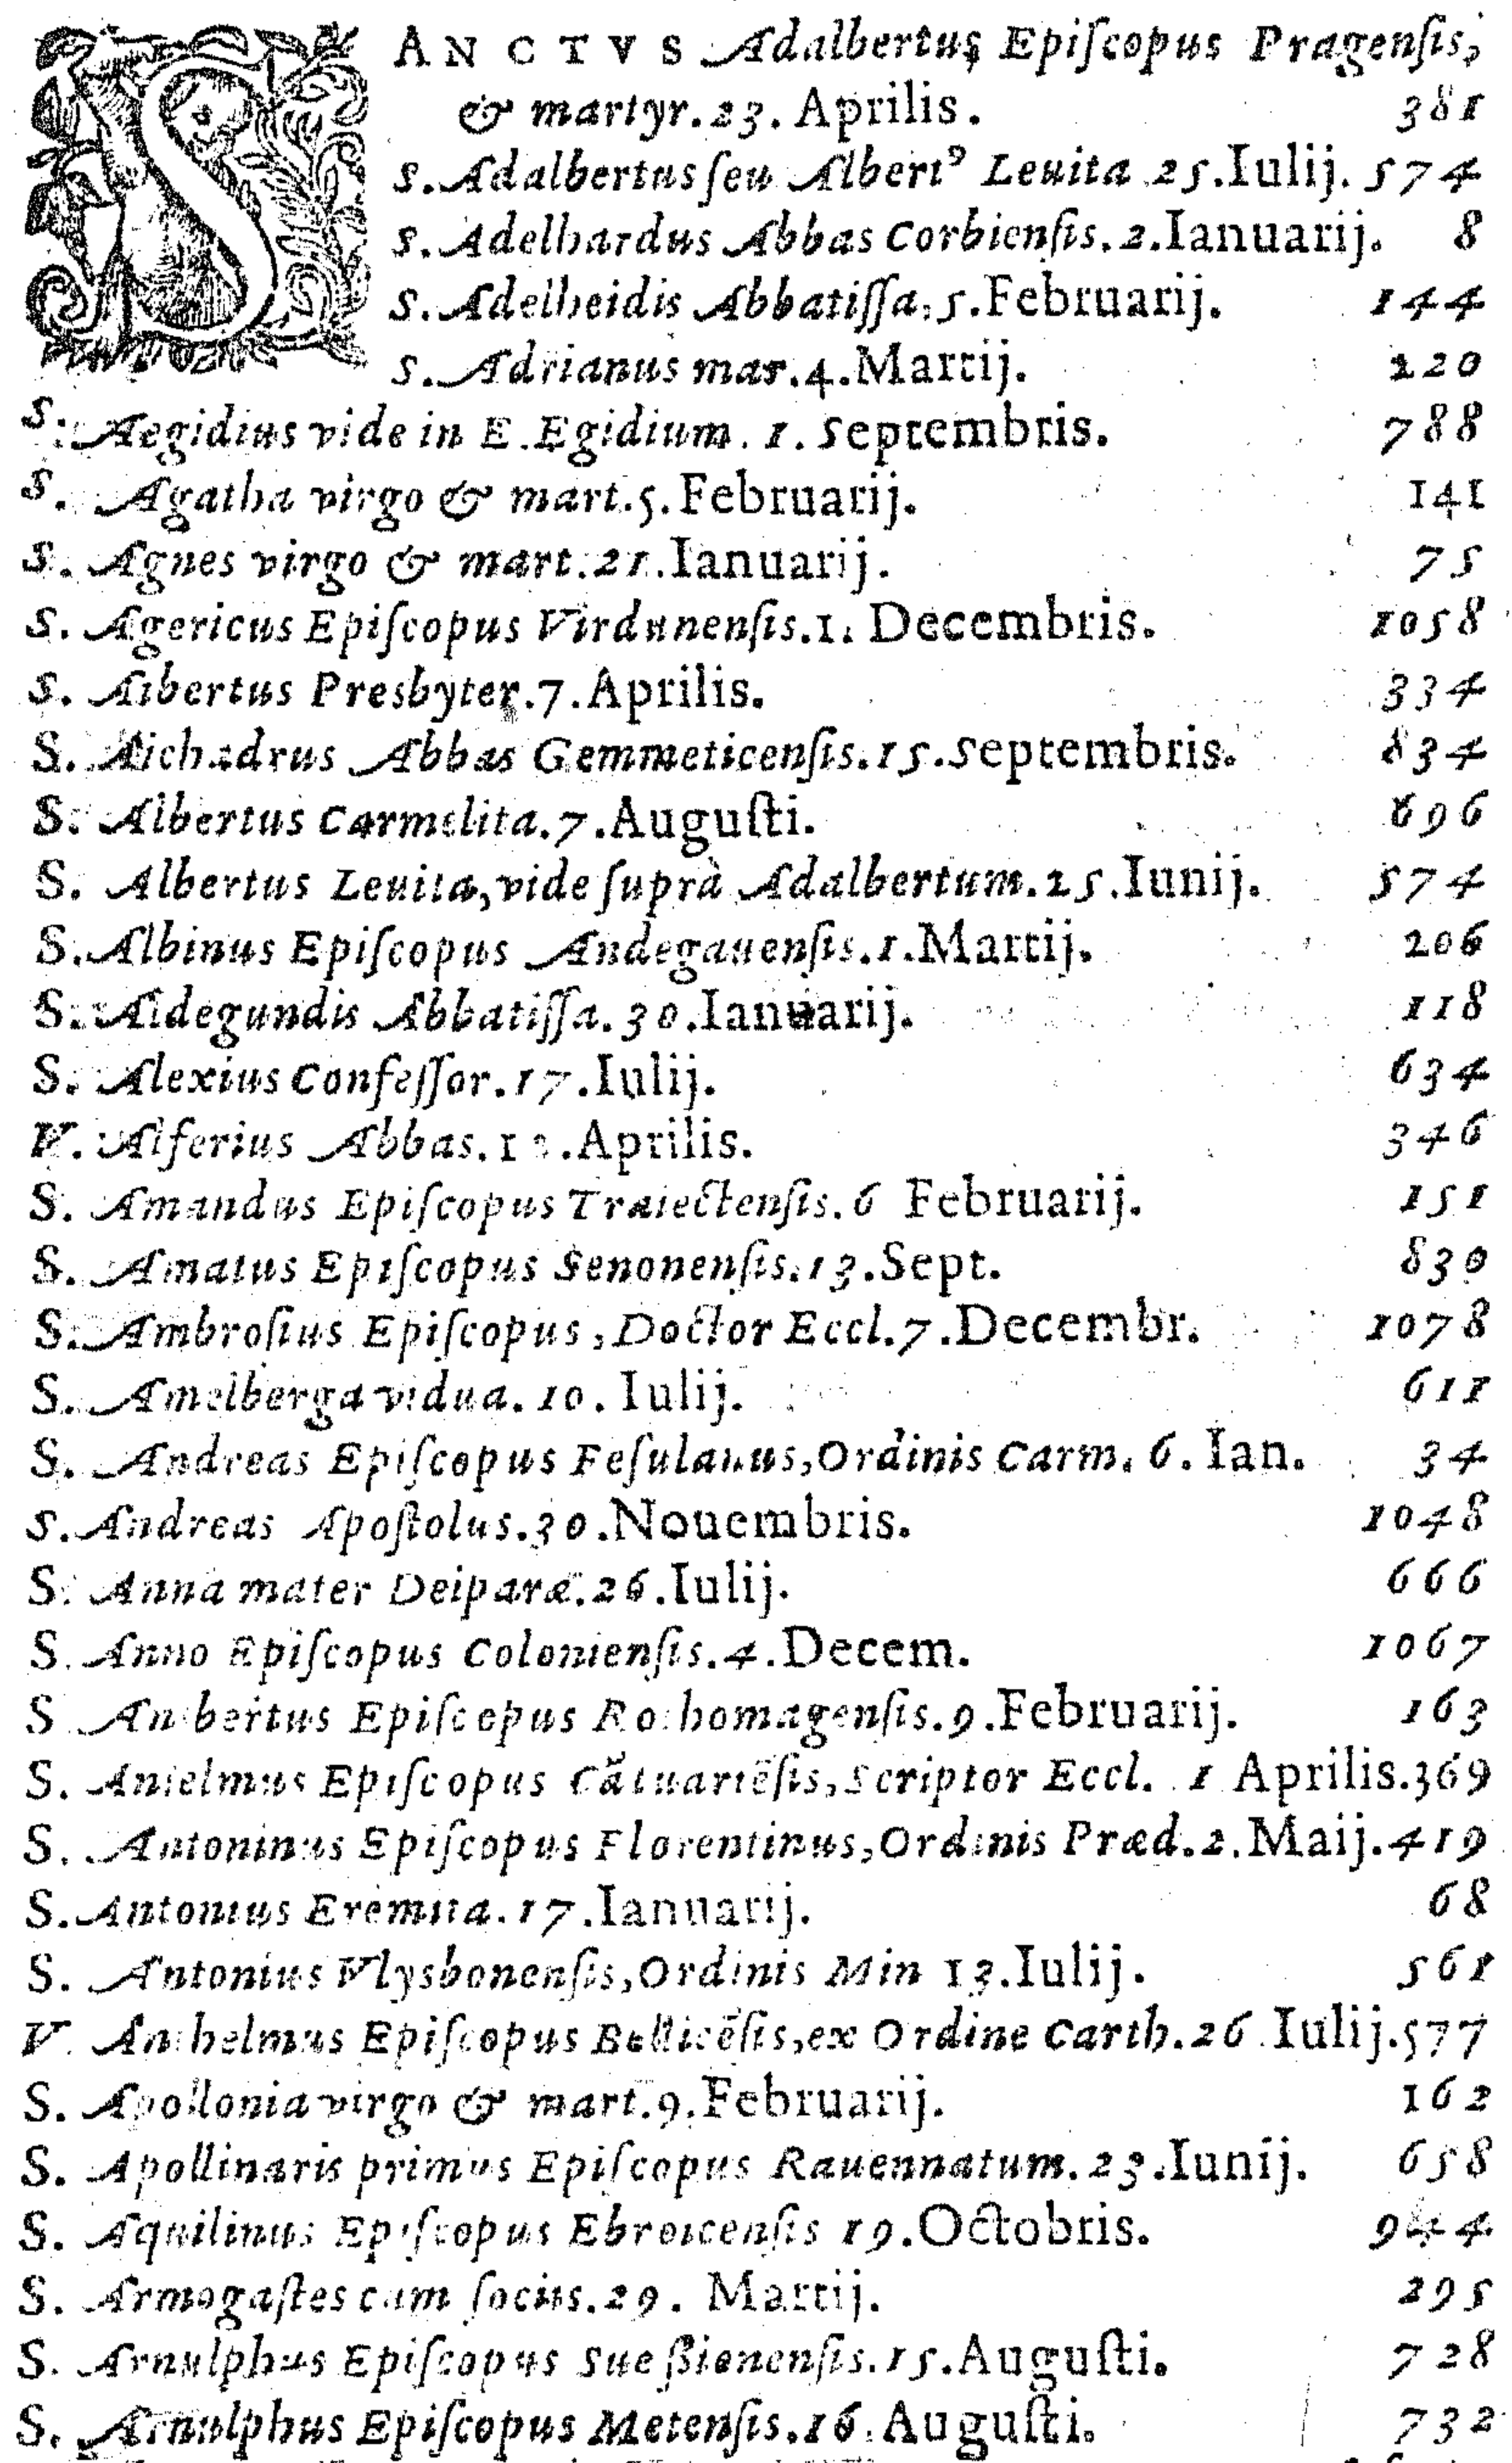 SANCTVS Adalbertus Epiſcopus Pragenſis,
& martyr. 23. Aprilis. 381
S. Adalbertus ſeu Albertꝰ Leuita 25. Iulij. 574
S. Adelhardus Abbas Corbienſis. 2. Ianuarij. 8
S. Adelheidis Abbatiſſa. 5. Februarij. 144
S. Adrianus mar. 4. Martij. 220
S. Aegidius vide in E. Egidium. 1. Septembris. 788
S. Agatha virgo & mart. 5. Februarij. 141
S. Agnes virgo & mart. 21. Ianuarij. 75
S. Agericus Epiſcopus Virdunenſis. 1. Decembris. 1058
S. Aibertus Presbyter. 7. Aprilis. 334
S. Aichadrus Abbas Gemmeticenſis. 15. Septembris. 834
S. Albertus Carmelita. 7. Auguſti. 696
S. Albertus Leuita, vide ſuprà Adalbertum. 25. Iunij. 574
S. Albinus Epiſcopus Andegauenſis. 1. Martij. 206
S. Aldegundis Abbatiſſa. 30. Ianuarij. 118
S. Alexius Confeſſor. 17. Iulij. 634
V. Alferius Abbas. Aprilis. 346
S. Amandus Epiſcopus Traiectenſis. 6 Februarij. 151
S. Amatus Epiſcopus Senonenſis. 13. Sept. 830
S. Ambroſius Epiſcopus, Doctor Eccl. 7. Decembr. 1078
S. Amelberga vidua. 10. Iulij. 611
S. Andreas Epiſcopus Feſulanus, Ordinis Carm. 6. Ian. 34
S. Andreas Apoſtolus. 30. Nouembris. 1048
S. Anna mater Deiparæ. 26. Iulij. 666
S. Anno Epiſcopus Colonienſis. 4. Decem. 1067
S Anſbertus Epiſcopus Rothomagenſis. 9. Februarij. 163
S. Anſelmus Epiſcopus Cātuariēſis, Scriptor Eccl. 1 Aprilis. 369
S. Antoninus Epiſcopus Florentinus, Ordinis Præd. 2. Maij. 419
S. Antonius Eremita. 17. Ianuarij. 68
S. Antonius Vlysbonenſis, Ordinis Min 13. Iulij. 561
V. Anthelmus Epiſcopus Bellicēſis, ex Ordine Carth. 26 Iulij. 577
S. Apollonia virgo & mart. 9. Februarij. 162
S. Apollinaris primus Epiſcopus Rauennatum. 23. Iunij. 658
S. Aquilinus Epiſcopus Ebroicenſis 19. Octobris. 944
S. Armogaſtes cum ſociis. 29. Martij. 295
S. Arnulphus Epiſcopus Sueſſionenſis. 15. Auguſti. 728
S. Arnulphus Epiſcopus Metenſis. 16. Auguſti. 732